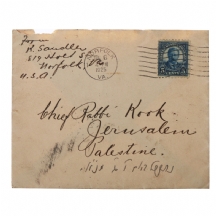 From
R. Sandler
819 Holt S
Norfolk Va
U.S.A
NORFOLK
VA
Chief Rabbi Kook
Jerusalem
Palestine.